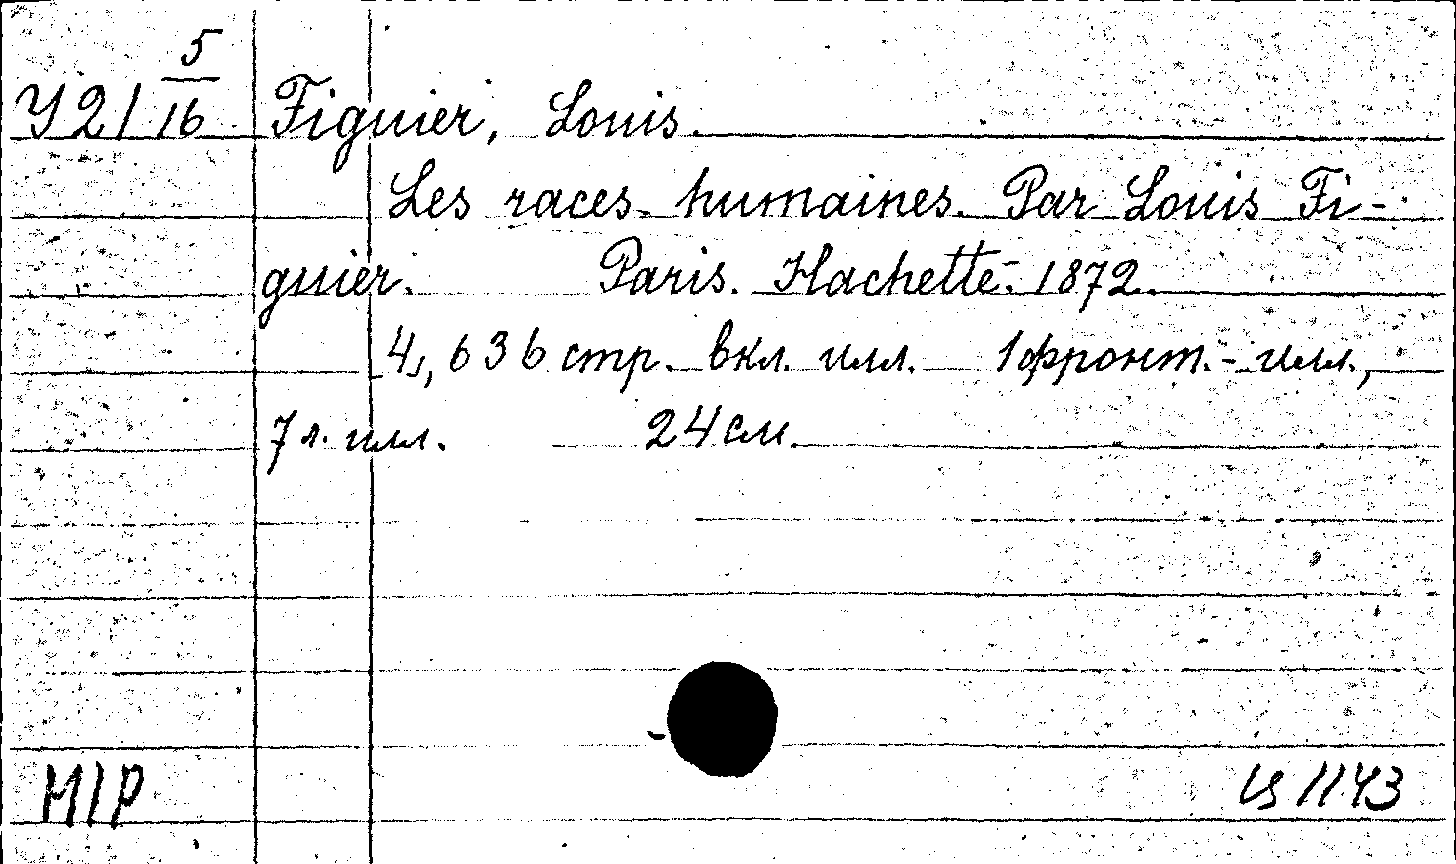 5
У 2 / 16 Figuier, Louis.
Les races humaines. Par Louis Fi-
guier. Paris. Hachette. 1872.
4, 636 стр. вкл. илл. 1 фронт.-илл.,
7 л. илл. 24 см.
М/Р 1143